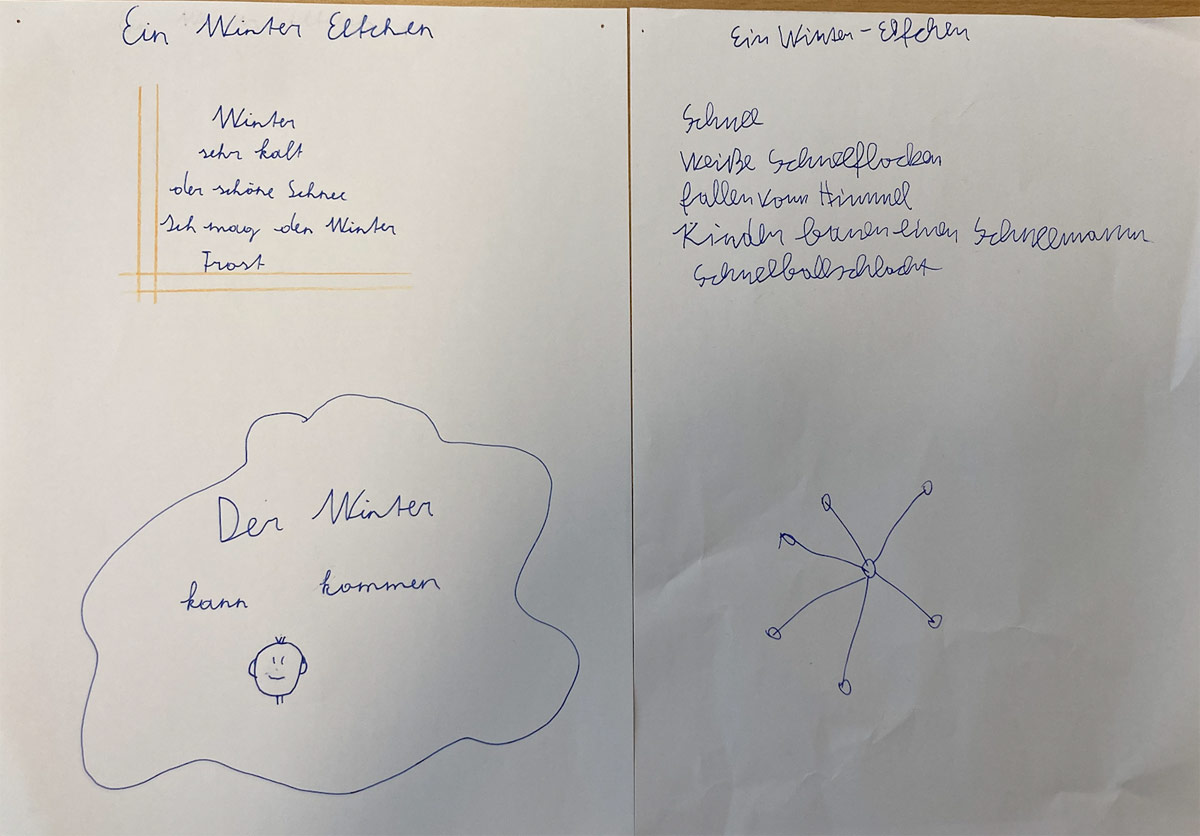 Ein Winter Elfchen
Winter
sehr kalt
der schöne Schnee
Ich mag den Winter
Frost
Der Winter
kann kommen
Ein Winter-Elfchen
Schnee
Weiße Schneeflocken
fallen vom Himmel
Kinder bauen einen Schneemann
Schneeballschlacht